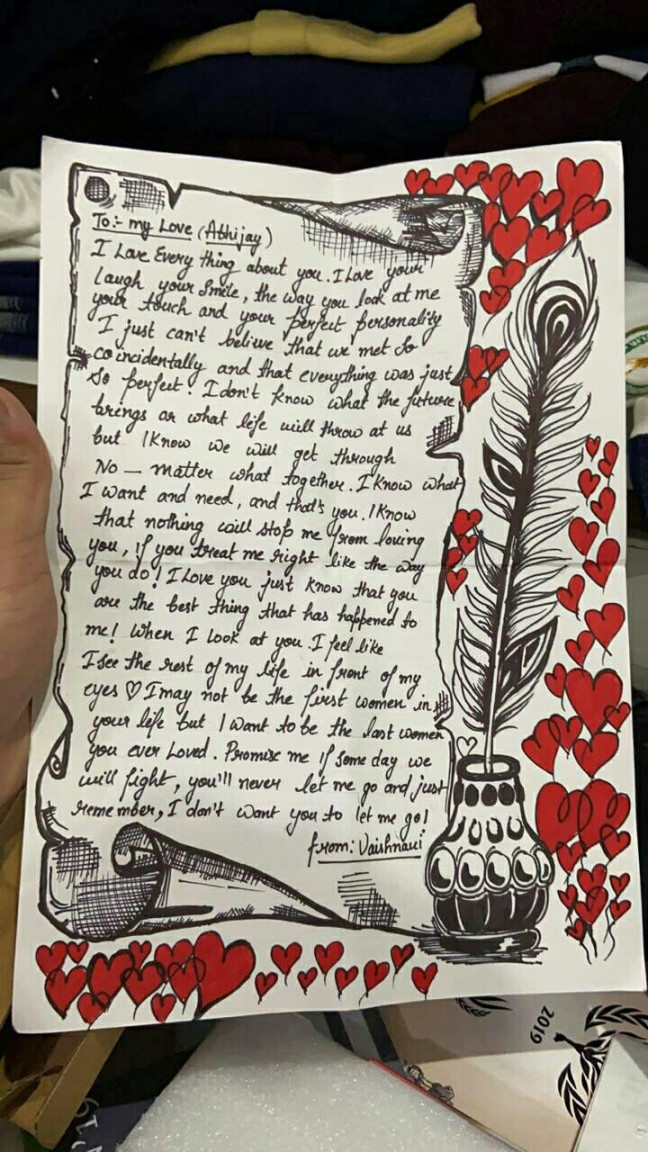 To:- my Love (Abhijay)
I Love Every thing about you. I Love your
laugh your Smile, the way you look at me
your touch and your perfect personality
I just can't believe that we met so
coincidentally and that everything was just
So perfect. I don't know what the future
brings or what life will throw at us
but I Know we will get through
No - matter what together. I know what
I want and need, and that's you. I Know
that nothing will stop me from loving
you, if you treat me right like the way
you do! I Love you just know that you
are the best thing that has happened to
me! When I look at you. I feel like
I see the rest of my life in front of my
eyes ♡ I may not be the first women in
your life but I want to be the last women
you ever Loved. Promise me if some day we
will fight, you'll never let me go and just
remember, I don't want you to let me go!
from: Vaishnavi
2019